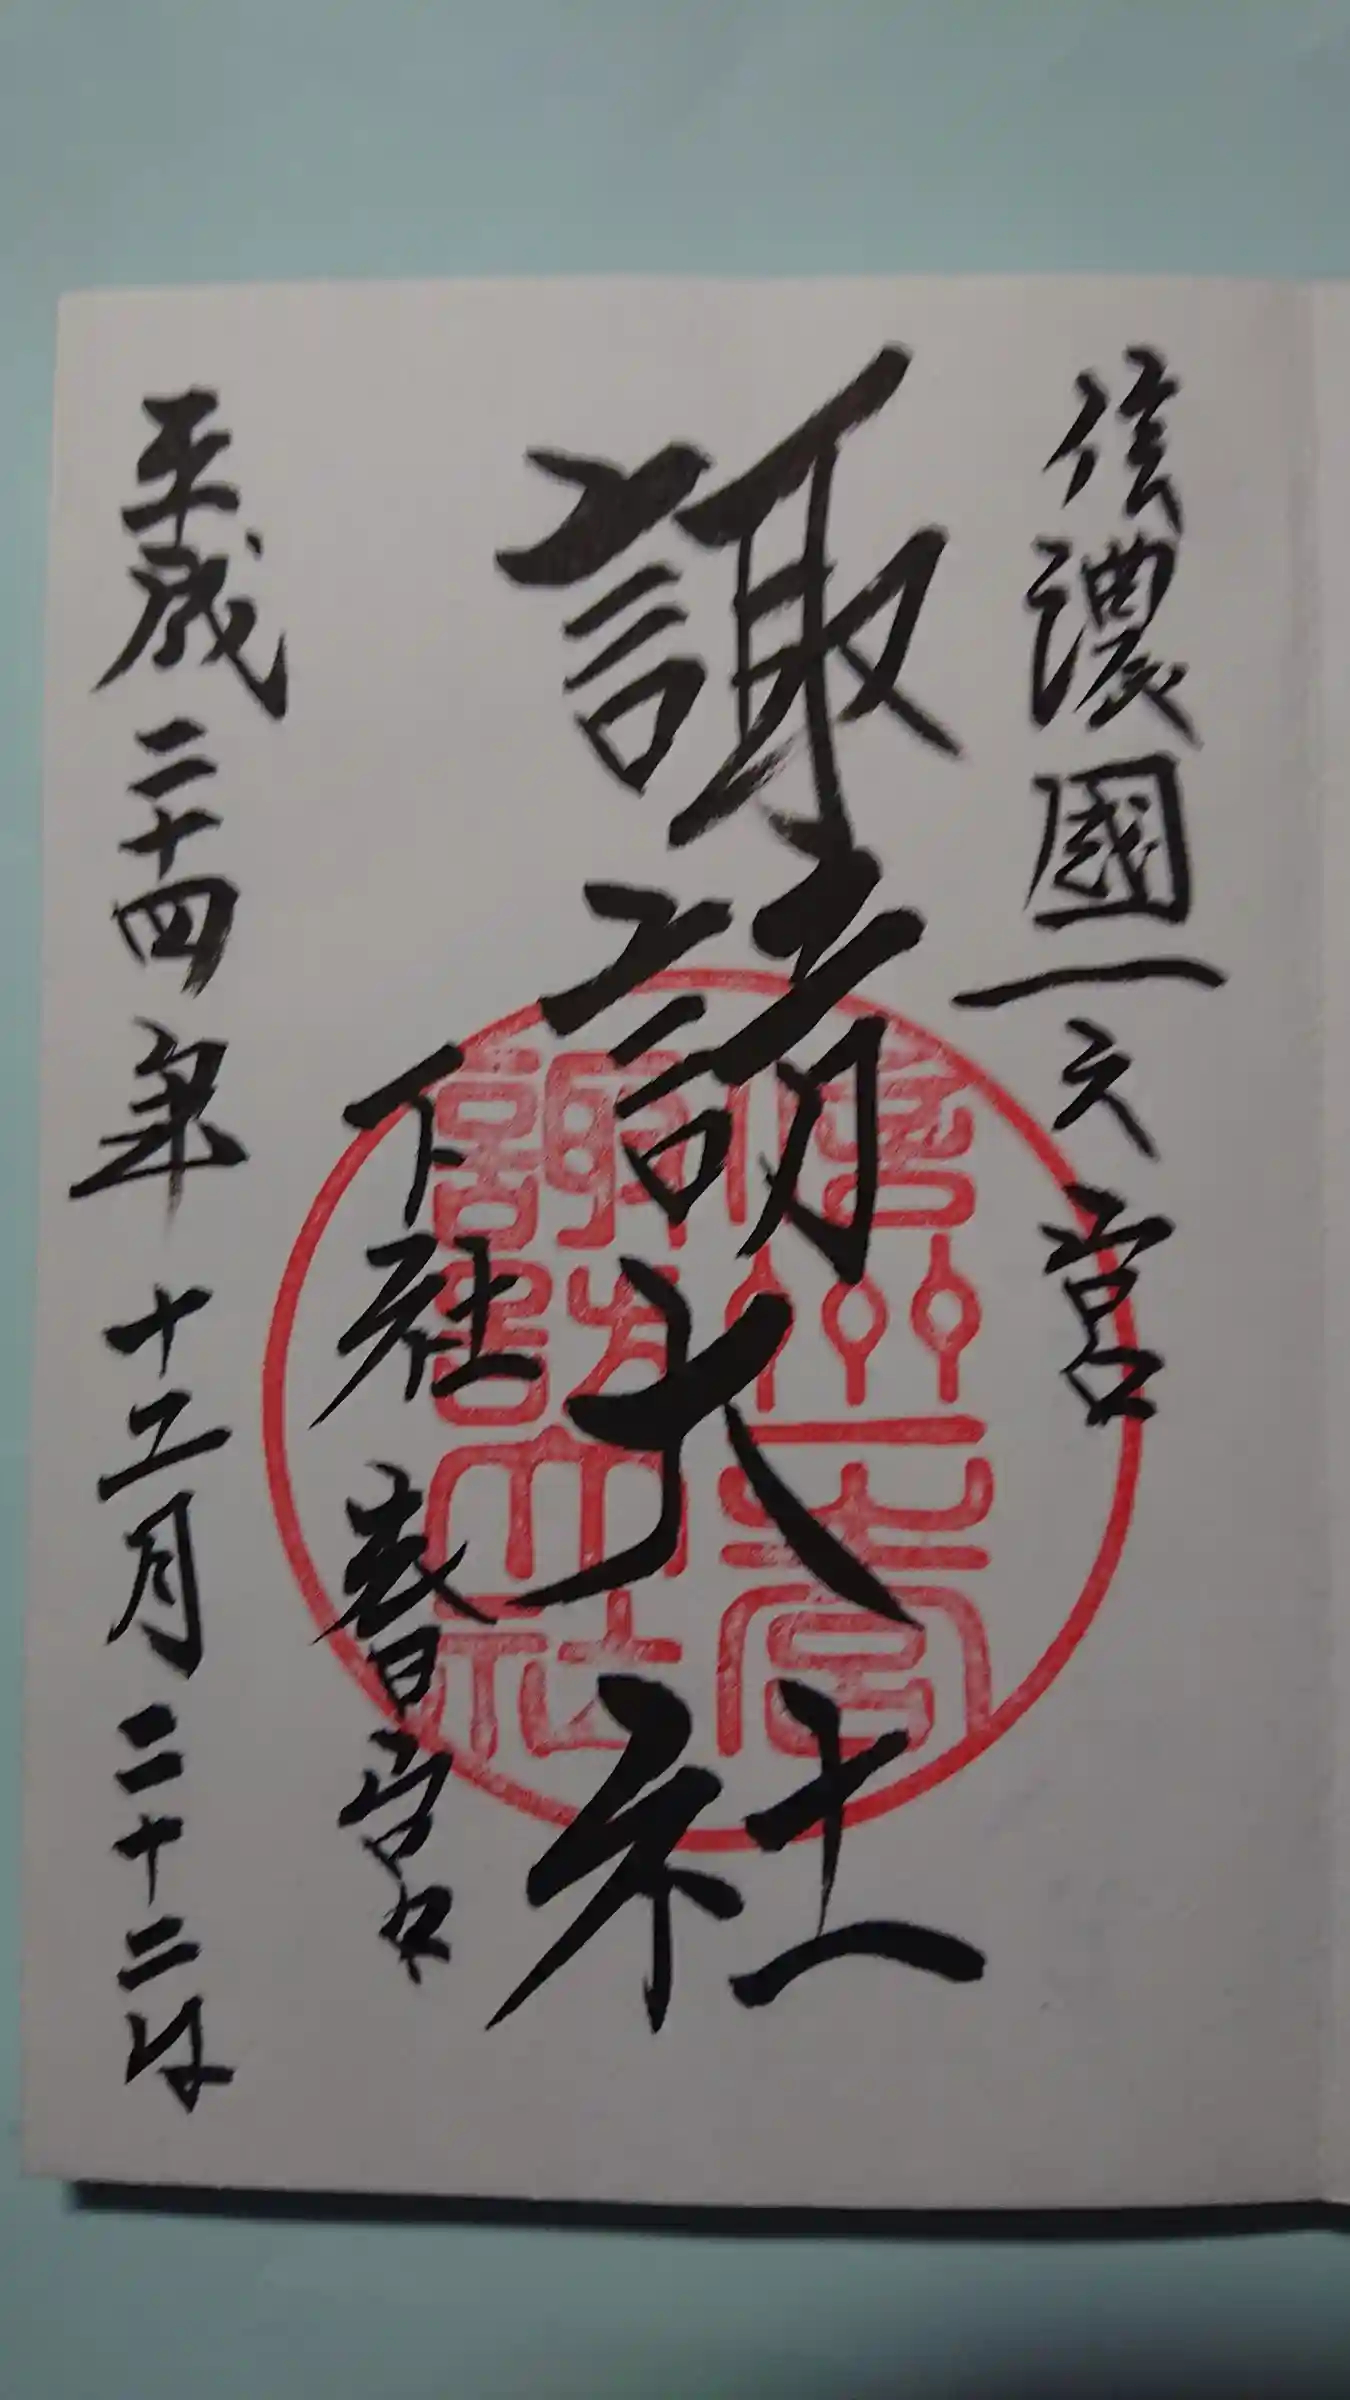 信濃國一之宮
諏訪大社
下社 春宮
平成二十四年 十二月二十二日
信州一之宮
諏訪大社